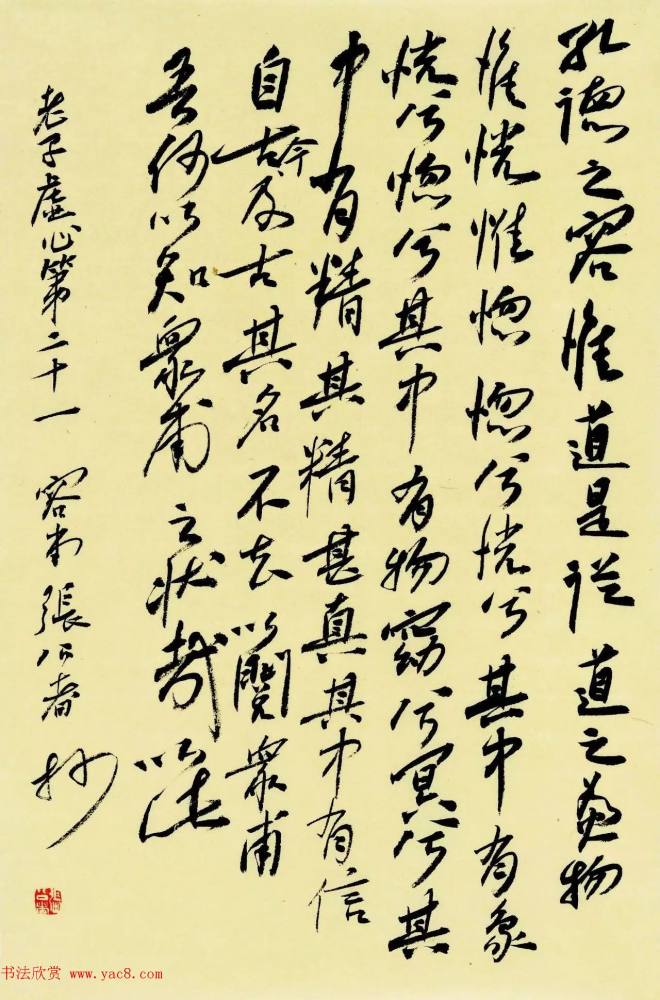 孔德之容惟道是從道之為物
惟恍惟惚惚兮恍兮其中有象
恍兮惚兮其中有物窈兮冥兮其
中有精其精甚真其中有信
自今及古其名不去以閱眾甫
吾何以知眾甫之狀哉以此
老子虛心第二十一 張公者抄
书法欣赏 www.yac8.com